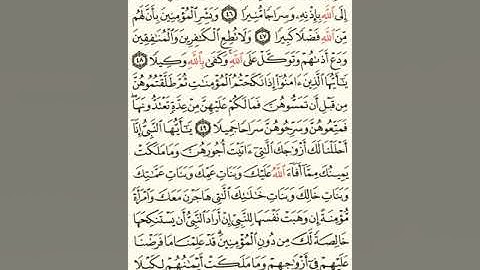 إِلَى ٱللَّهِ بِإِذْنِهِۦ وَسِرَاجًا مُّنِيرًا ٤٦ وَبَشِّرِ ٱلْمُؤْمِنِينَ بِأَنَّ لَهُم
مِّنَ ٱللَّهِ فَضْلًا كَبِيرًا ٤٧ وَلَا تُطِعِ ٱلْكَٰفِرِينَ وَٱلْمُنَٰفِقِينَ
وَدَعْ أَذَىٰهُمْ وَتَوَكَّلْ عَلَى ٱللَّهِ ۚ وَكَفَىٰ بِٱللَّهِ وَكِيلًا ٤٨
يَٰٓأَيُّهَا ٱلَّذِينَ ءَامَنُوٓا۟ إِذَا نَكَحْتُمُ ٱلْمُؤْمِنَٰتِ ثُمَّ طَلَّقْتُمُوهُنَّ
مِن قَبْلِ أَن تَمَسُّوهُنَّ فَمَا لَكُمْ عَلَيْهِنَّ مِنْ عِدَّةٍ تَعْتَدُّونَهَا ۖ
فَمَتِّعُوهُنَّ وَسَرِّحُوهُنَّ سَرَاحًا جَمِيلًا ٤٩ يَٰٓأَيُّهَا ٱلنَّبِىُّ إِنَّآ
أَحْلَلْنَا لَكَ أَزْوَٰجَكَ ٱلَّٰتِىٓ ءَاتَيْتَ أُجُورَهُنَّ وَمَا مَلَكَتْ
يَمِينُكَ مِمَّآ أَفَآءَ ٱللَّهُ عَلَيْكَ وَبَنَاتِ عَمِّكَ وَبَنَاتِ عَمَّٰتِكَ
وَبَنَاتِ خَالِكَ وَبَنَاتِ خَٰلَٰتِكَ ٱلَّٰتِى هَاجَرْنَ مَعَكَ وَٱمْرَأَةً
مُّؤْمِنَةً إِن وَهَبَتْ نَفْسَهَا لِلنَّبِىِّ إِنْ أَرَادَ ٱلنَّبِىُّ أَن يَسْتَنكِحَهَا
خَالِصَةً لَّكَ مِن دُونِ ٱلْمُؤْمِنِينَ ۗ قَدْ عَلِمْنَا مَا فَرَضْنَا
عَلَيْهِمْ فِىٓ أَزْوَٰجِهِمْ وَمَا مَلَكَتْ أَيْمَٰنُهُمْ لِكَيْلَا